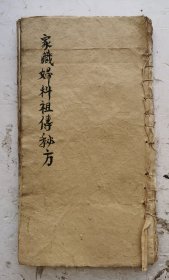 家藏婦科祖傳秘方